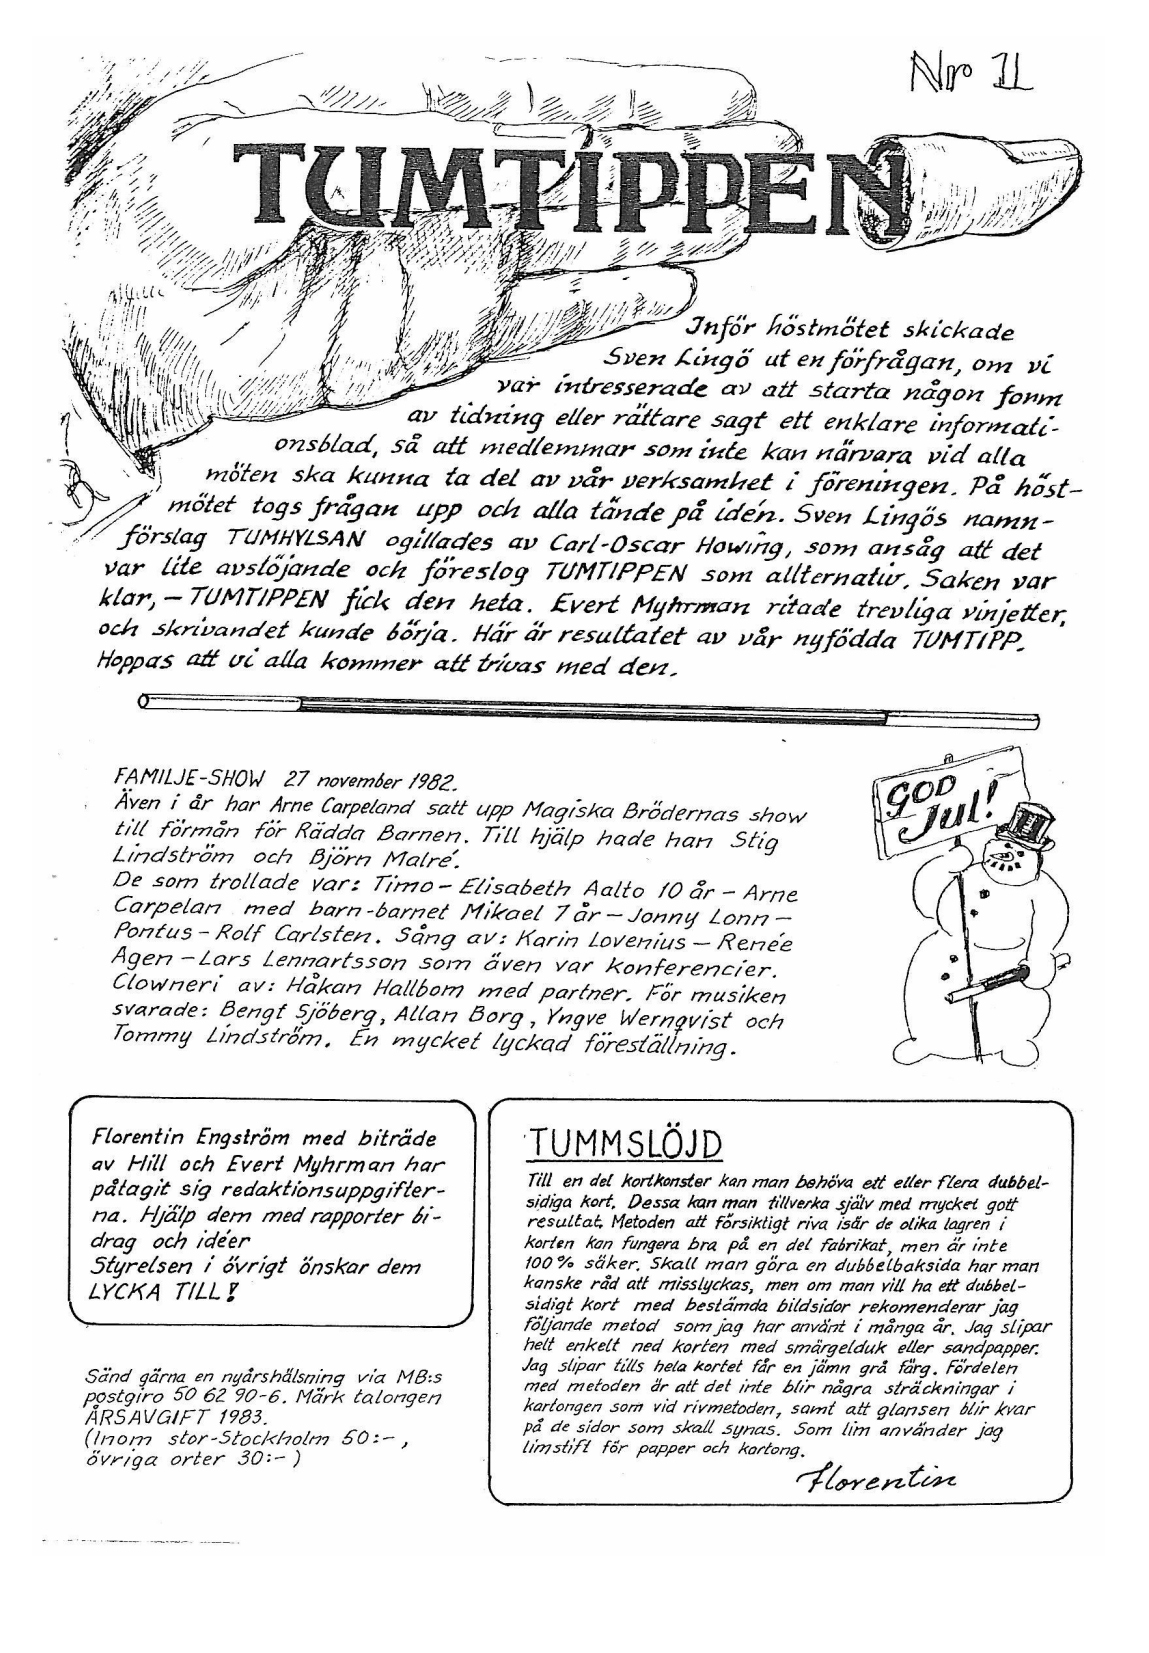 Nr 1
TUMTIPPEN
Inför höstmötet skickade
Sven Lingö ut en förfrågan, om vi
var intresserade av att starta någon form
av tidning eller rättare sagt ett enklare informati-
onsblad, så att medlemmar som inte kan närvara vid alla
möten ska kunna ta del av vår verksamhet i föreningen. På höst-
mötet togs frågan upp och alla tände på idén. Sven Lingös namn-
förslag TUMHYLSAN ogillades av Carl-Oscar Howing, som ansåg att det
var lite avslöjande och föreslog TUMTIPPEN som allternativ. Saken var
klar, – TUMTIPPEN fick den heta. Evert Myhrman ritade trevliga vinjetter,
och skrivandet kunde börja. Här är resultatet av vår nyfödda TUMTIPP.
Hoppas att vi alla kommer att trivas med den.
FAMILJE-SHOW 27 november 1982.
Även i år har Arne Carpeland satt upp Magiska Brödernas show
till förmån för Rädda Barnen. Till hjälp hade han Stig
Lindström och Björn Malré.
De som trollade var: Timo – Elisabeth Aalto 10 år – Arne
Carpelan med barn-barnet Mikael 7 år – Jonny Lonn –
Pontus – Rolf Carlsten. Sång av: Karin Lovenius – Renée
Agen – Lars Lennartsson som även var konferencier.
Clowneri av: Håkan Hallbom med partner. För musiken
svarade: Bengt Sjöberg, Allan Borg, Yngve Wernqvist och
Tommy Lindström. En mycket lyckad föreställning.
GOD
JUL!
Florentin Engström med biträde
av Hill och Evert Myhrman har
påtagit sig redaktionsuppgifter-
na. Hjälp dem med rapporter bi-
drag och idéer
Styrelsen i övrigt önskar dem
LYCKA TILL!
Sänd gärna en nyårshälsning via MB:s
postgiro 50 62 90-6. Märk talongen
ÅRSAVGIFT 1983.
(Inom stor-Stockholm 50:-,
övriga orter 30:-)
TUMMSLÖJD
Till en del kortkonster kan man behöva ett eller flera dubbel-
sidiga kort. Dessa kan man tillverka själv med mycket gott
resultat. Metoden att försiktigt riva isär de olika lagren i
korten kan fungera bra på en del fabrikat, men är inte
100% säker. Skall man göra en dubbelbaksida har man
kanske råd att misslyckas, men om man vill ha ett dubbel-
sidigt kort med bestämda bildsidor rekomenderar jag
följande metod som jag har använt i många år. Jag slipar
helt enkelt ned korten med smärgelduk eller sandpapper.
Jag slipar tills hela kortet får en jämn grå färg. Fördelen
med metoden är att det inte blir några sträckningar i
kartongen som vid rivmetoden, samt att glansen blir kvar
på de sidor som skall synas. Som lim använder jag
limstift för papper och kartong.
Florentin